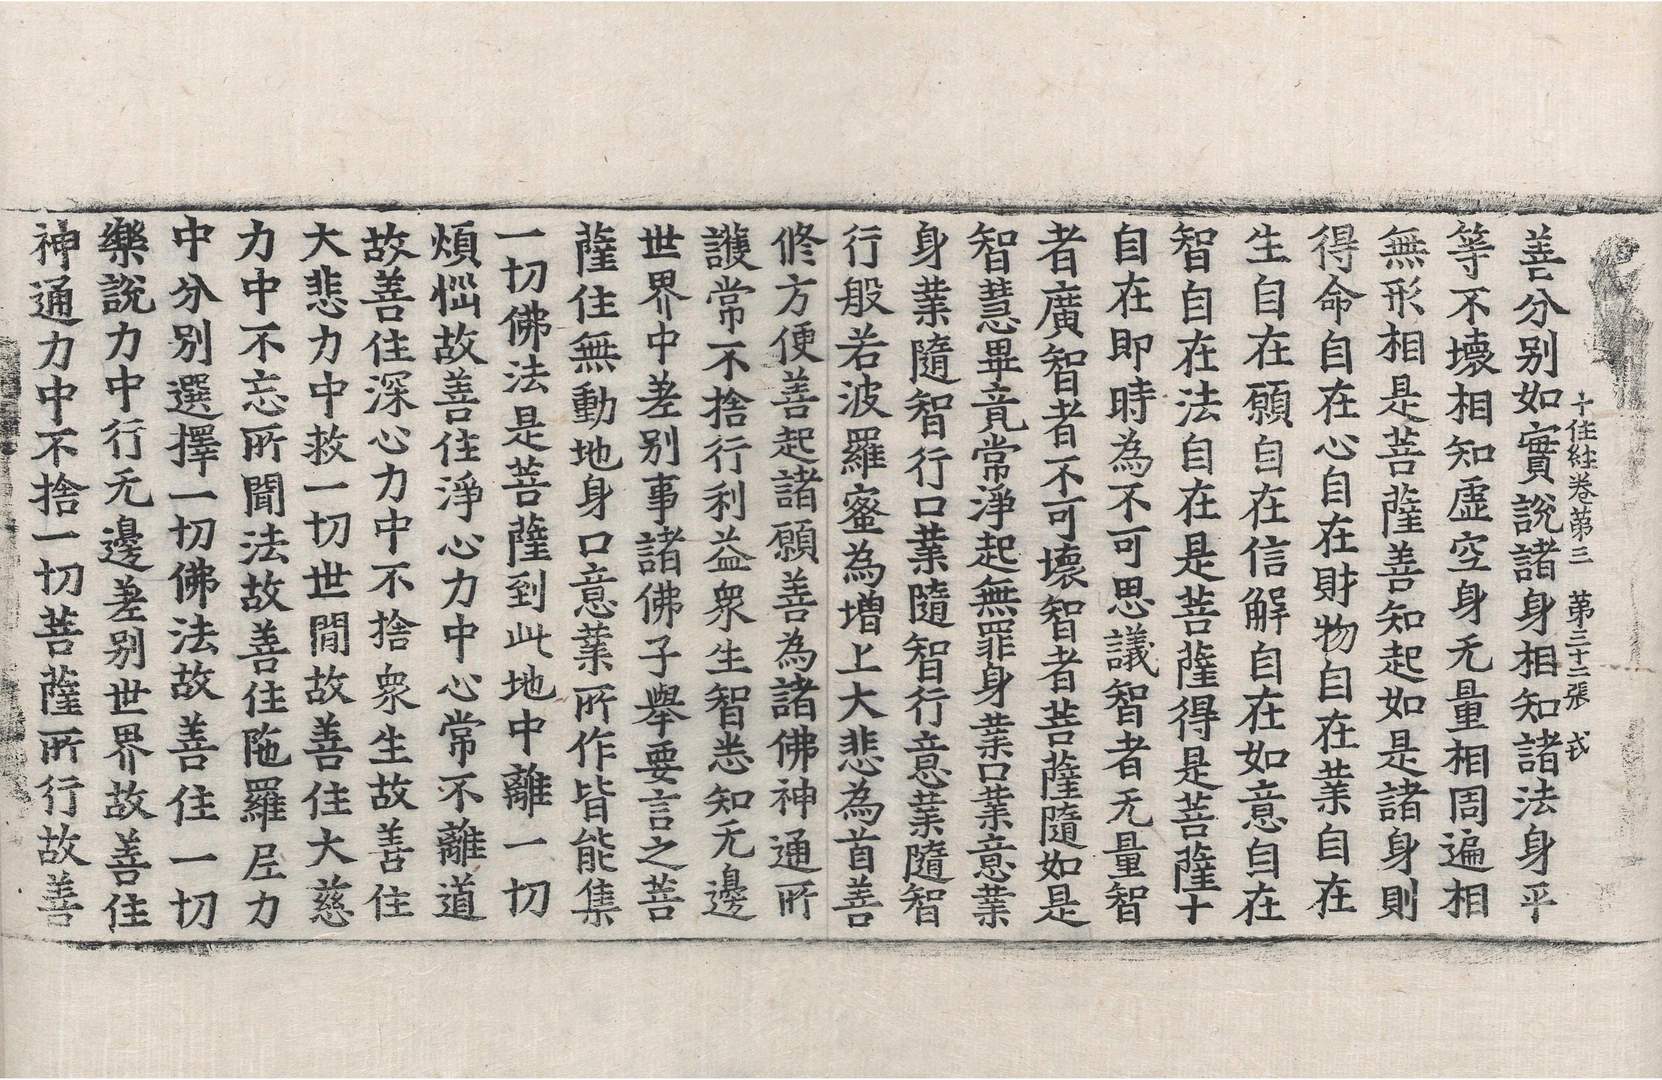 十住經卷第三 第三十二張 戎
善分別如實說諸身相知諸法身平
等不壞相知虛空身无量相周遍相
無形相是菩薩善知起如是諸身則
得命自在心自在財物自在業自在
生自在願自在信解自在如意自在
智自在法自在是菩薩得是菩薩十
自在即時為不可思議智者无量智
者廣智者不可壞智者菩薩隨如是
智慧畢竟常淨起無罪身業口業意業
身業隨智行口業隨智行意業隨智
行般若波羅蜜為增上大悲為首善
修方便善起諸願善為諸佛神通所
護常不捨行利益眾生智悉知无邊
世界中差別事諸佛子舉要言之菩
薩住無動地身口意業所作皆能集
一切佛法是菩薩到此地中離一切
煩惱故善住淨心力中心常不離道
故善住深心力中不捨眾生故善住
大悲力中救一切世間故善住大慈
力中不忘所聞法故善住陁羅尼力
中分別選擇一切佛法故善住一切
樂說力中行无邊差别世界故善住
神通力中不捨一切菩薩所行故善